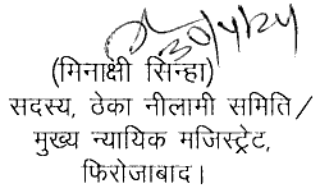 30/4/24
(मिनाक्षी सिन्हा)
सदस्य, ठेका नीलामी समिति /
मुख्य न्यायिक मजिस्ट्रेट,
फिरोजाबाद।